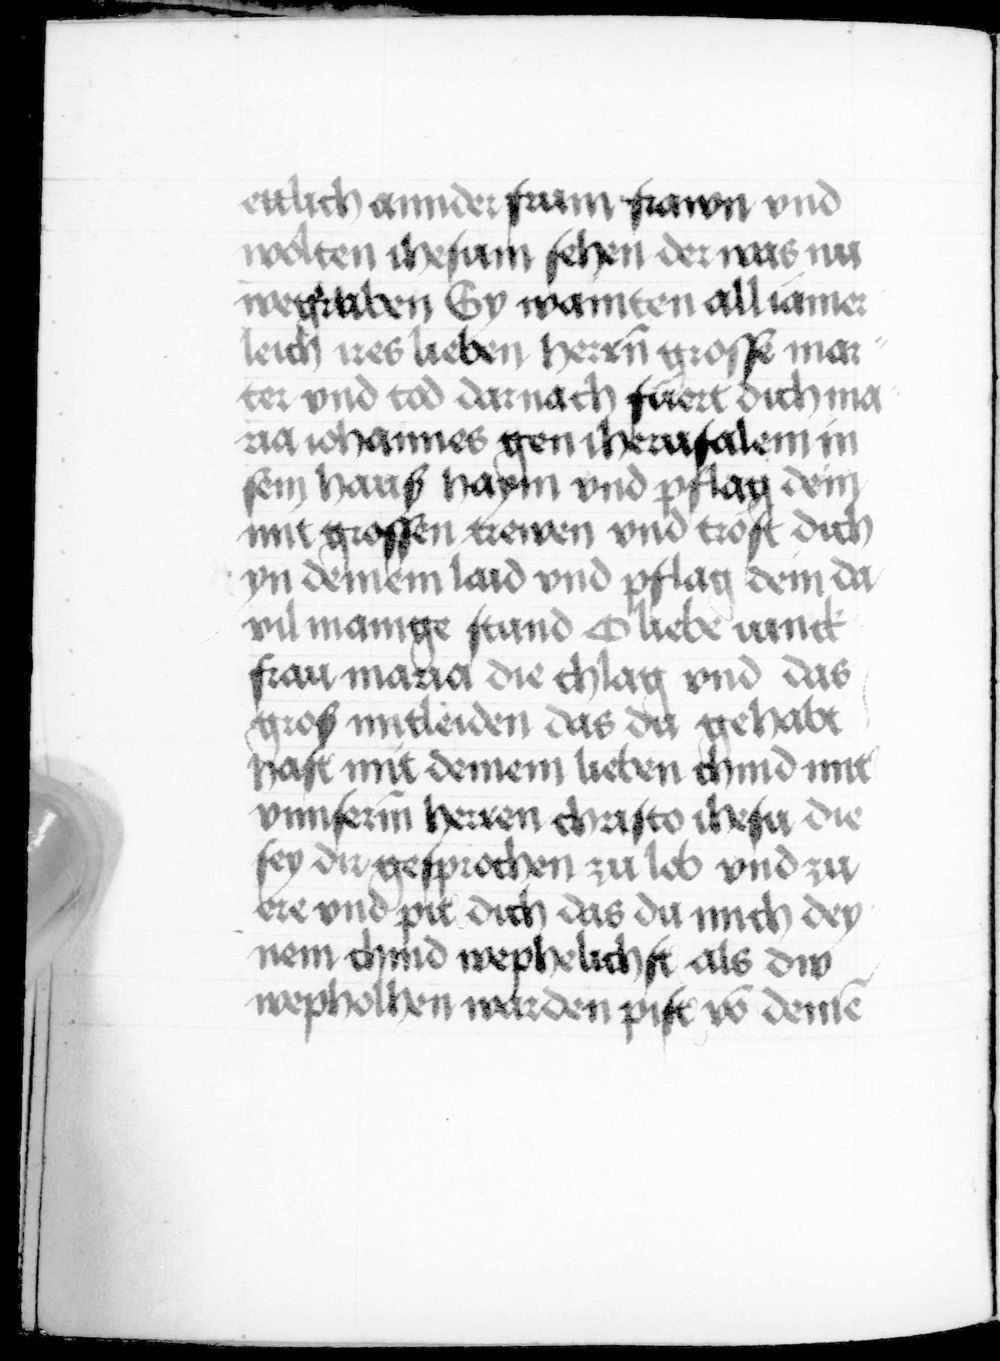 ettlich annder frum frawn vnd
wolten ihesum sehen der was nu
wegraben Sy wainten all iamer
leich ires lieben herrn̄ grosse mar-
ter vnd tod darnach fuert dich ma
ria iohannes gen iherusalem in
sein haus haym vnd pflag dein
mit grossen trewen vnd trost dich
yn deinem laid vnd pflag dein da
vil mainge stund O liebe iunck
frau maria die chlag vnd das
gros mitleiden das du gehabt
hast mit deinem lieben chind mit
vnnserm̄ herren christo ihesu die
sey dir gesprochen zu lob vnd zu
ere vnd pit dich das du mich dey
nem chind wephelichst als diw
wepholhen warden pist vō deinē